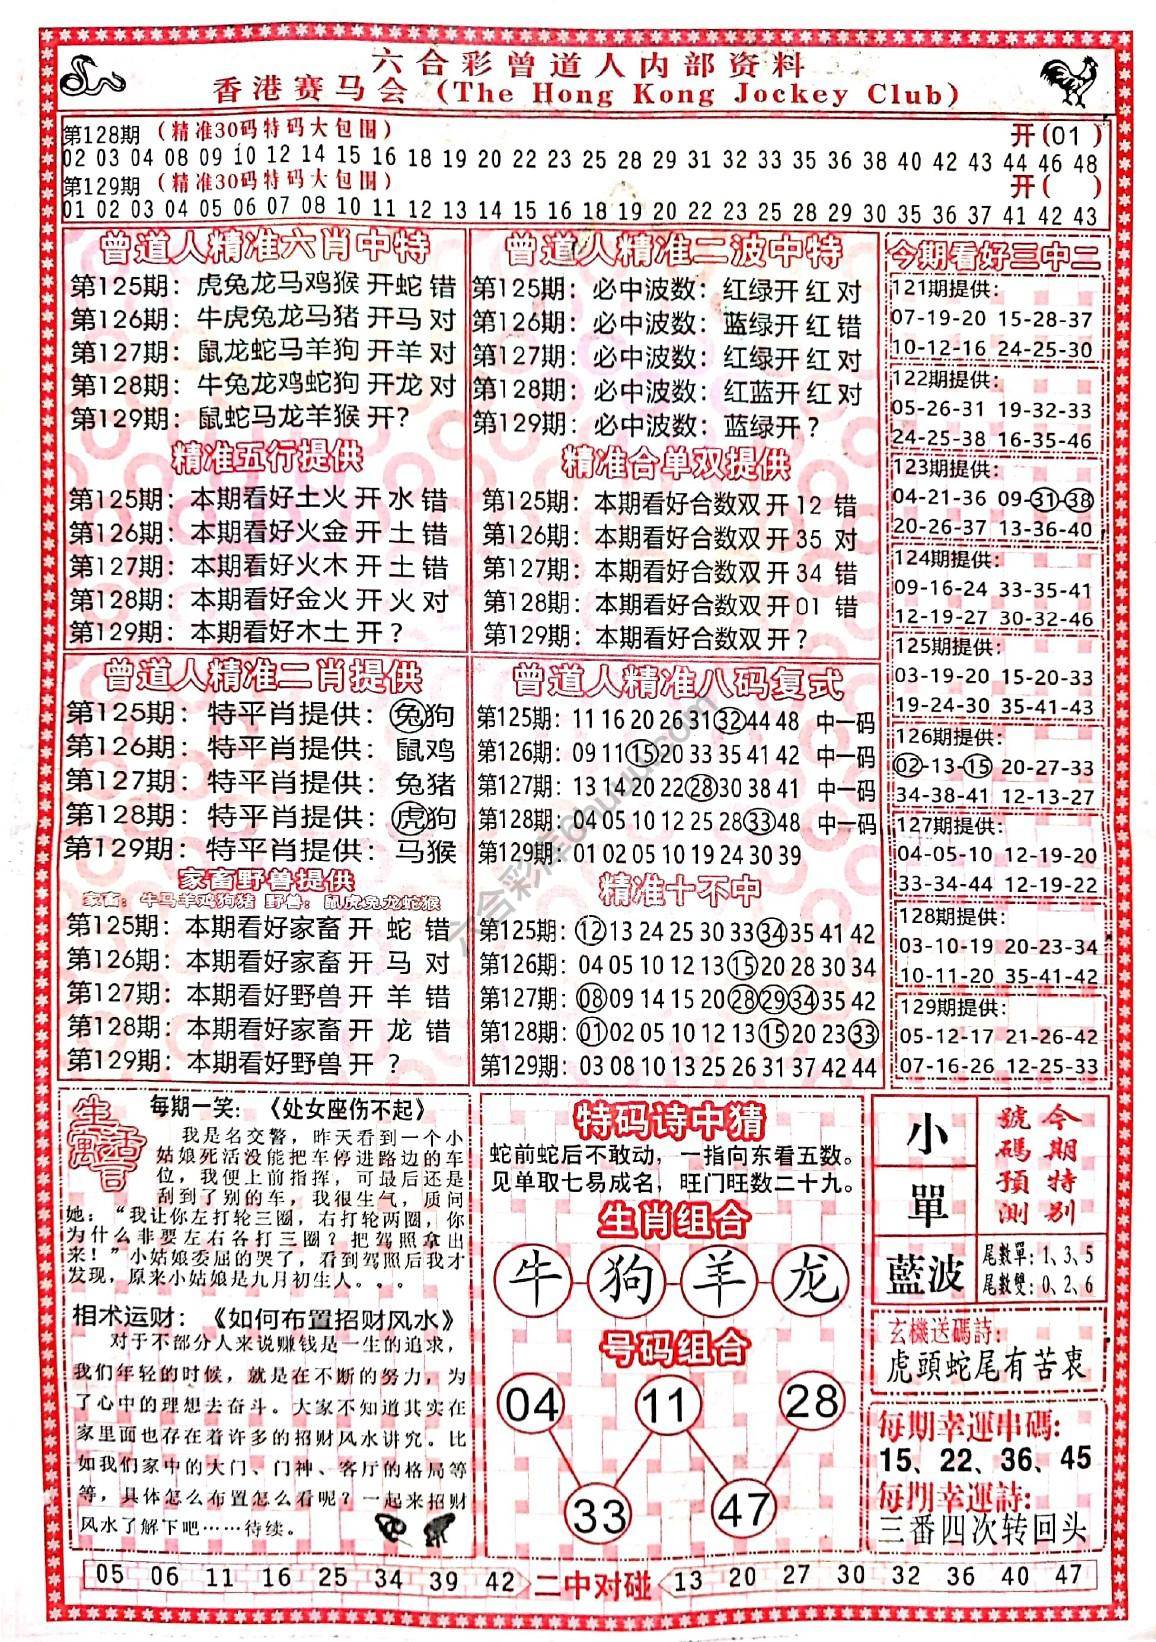 六合彩曾道人内部资料
香港赛马会 (The Hong Kong Jockey Club)
第128期 (精准30码特码大包围) 开(01)
02 03 04 08 09 10 12 14 15 16 18 19 20 22 23 25 28 29 31 32 33 35 36 38 40 42 43 44 46 48
第129期 (精准30码特码大包围) 开( )
01 02 03 04 05 06 07 08 10 11 12 13 14 15 16 18 19 20 22 23 25 28 29 30 35 36 37 41 42 43
曾道人精准六肖中特
第125期: 虎兔龙马鸡猴 开蛇 错
第126期: 牛虎兔龙马猪 开马 对
第127期: 鼠龙蛇马羊狗 开羊 对
第128期: 牛兔龙鸡蛇狗 开龙 对
第129期: 鼠蛇马龙羊猴 开?
精准五行提供
第125期: 本期看好土火 开 水 错
第126期: 本期看好火金 开 土 错
第127期: 本期看好火木 开 土 错
第128期: 本期看好金火 开 火 对
第129期: 本期看好木土 开 ?
曾道人精准二波中特
第125期: 必中波数: 红绿开 红 对
第126期: 必中波数: 蓝绿开 红 错
第127期: 必中波数: 红绿开 红 对
第128期: 必中波数: 红蓝开 红 对
第129期: 必中波数: 蓝绿开 ?
精准合单双提供
第125期: 本期看好合数双 开 12 错
第126期: 本期看好合数双 开 35 对
第127期: 本期看好合数双 开 34 错
第128期: 本期看好合数双 开 01 错
第129期: 本期看好合数双 开?
今期看好三中二
121期提供:
07-19-20 15-28-37
10-12-16 24-25-30
122期提供:
05-26-31 19-32-33
24-25-38 16-35-46
123期提供:
04-21-36 09-31-38
20-26-37 13-36-40
124期提供:
09-16-24 33-35-41
12-19-27 30-32-46
125期提供:
03-19-20 15-20-33
19-24-30 35-41-43
126期提供:
02-13-15 20-27-33
34-38-41 12-13-27
127期提供:
04-05-10 12-19-20
33-34-44 12-19-22
128期提供:
03-10-19 20-23-34
10-11-20 35-41-42
129期提供:
05-12-17 21-26-42
07-16-26 12-25-33
曾道人精准二肖提供
第125期: 特平肖提供: 兔狗
第126期: 特平肖提供: 鼠鸡
第127期: 特平肖提供: 兔猪
第128期: 特平肖提供: 虎狗
第129期: 特平肖提供: 马猴
家畜野兽提供
家畜: 牛马羊鸡狗猪 野兽: 鼠虎兔龙蛇猴
第125期: 本期看好家畜 开 蛇 错
第126期: 本期看好家畜 开 马 对
第127期: 本期看好野兽 开 羊 错
第128期: 本期看好家畜 开 龙 错
第129期: 本期看好野兽 开 ?
曾道人精准八码复式
第125期: 11 16 20 26 31 32 44 48 中一码
第126期: 09 11 15 20 33 35 41 42 中一码
第127期: 13 14 20 22 28 30 38 41 中一码
第128期: 04 05 10 12 25 28 33 48 中一码
第129期: 01 02 05 10 19 24 30 39
精准十不中
第125期: 12 13 24 25 30 33 34 35 41 42
第126期: 04 05 10 12 13 15 20 28 30 34
第127期: 08 09 14 15 20 28 29 34 35 42
第128期: 01 02 05 10 12 13 15 20 23 33
第129期: 03 08 10 13 25 26 31 37 42 44
六合彩库6huu.com
生活寓言
每期一笑: 《处女座伤不起》
我是名交警，昨天看到一个小
姑娘死活没能把车停进路边的车
位，我便上前指挥，可最后还是
刮到了别的车，我很生气，质问
她：“我让你左打轮三圈，右打轮两圈，你
为什么非要左右各打三圈？把驾照拿出
来！”小姑娘委屈的哭了，看到驾照后我才
发现，原来小姑娘是九月初生人。。。
相术运财: 《如何布置招财风水》
对于不部分人来说赚钱是一生的追求，
我们年轻的时候，就是在不断的努力，为
了心中的理想去奋斗。大家不知道其实在
家里面也存在着许多的招财风水讲究。比
如我们家中的大门、门神、客厅的格局等
等，具体怎么布置怎么看呢？一起来招财
风水了解下吧……待续。
特码诗中猜
蛇前蛇后不敢动，一指向东看五数。
见单取七易成名，旺门旺数二十九。
生肖组合
牛 狗 羊 龙
号码组合
04 11 28
33 47
小
單
藍波
今期特别
號碼預測
尾數單: 1、3、5
尾數雙: 0、2、6
玄機送碼詩:
虎頭蛇尾有苦衷
每期幸運串碼:
15、22、36、45
每期幸運詩:
三番四次转回头
05 06 11 16 25 34 39 42 二中对碰 13 20 27 30 32 36 40 47